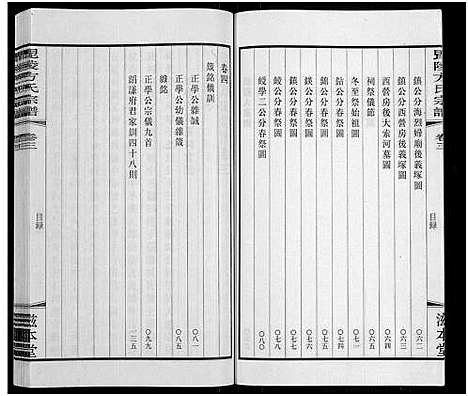 毘陵方氏宗譜
卷三
目録
滋本堂
鎮公分海烈婦廟後義塚圖 〇六二
鎮公分西營房後義塚圖 〇六三
西營房後大索河墓圖 〇六四
祠祭儀節 〇六五
冬至祭始祖圖 〇七三
鈷公分春祭圖 〇七四
鍈公分春祭圖 〇七五
鎮公分春祭圖 〇七六
錕公分春祭圖 〇七七
錦公分春祭圖 〇七八
峻學二公分春祭圖 〇八〇
卷四
箴銘儀訓
正學公雜誡 〇八一
正學公幼儀雜箴 〇八五
雜銘
正學公宗儀九首 〇九九
謟謙府君家訓四十八則 一二五
毘陵方氏宗譜
卷三
目録
滋本堂